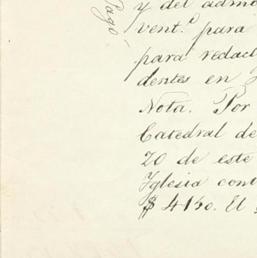 Pagó
y del admo
vent.º para
para redac
dentes en
Nota. Por
Catedral de
20 de este
Yglesia con
$ 4130. El